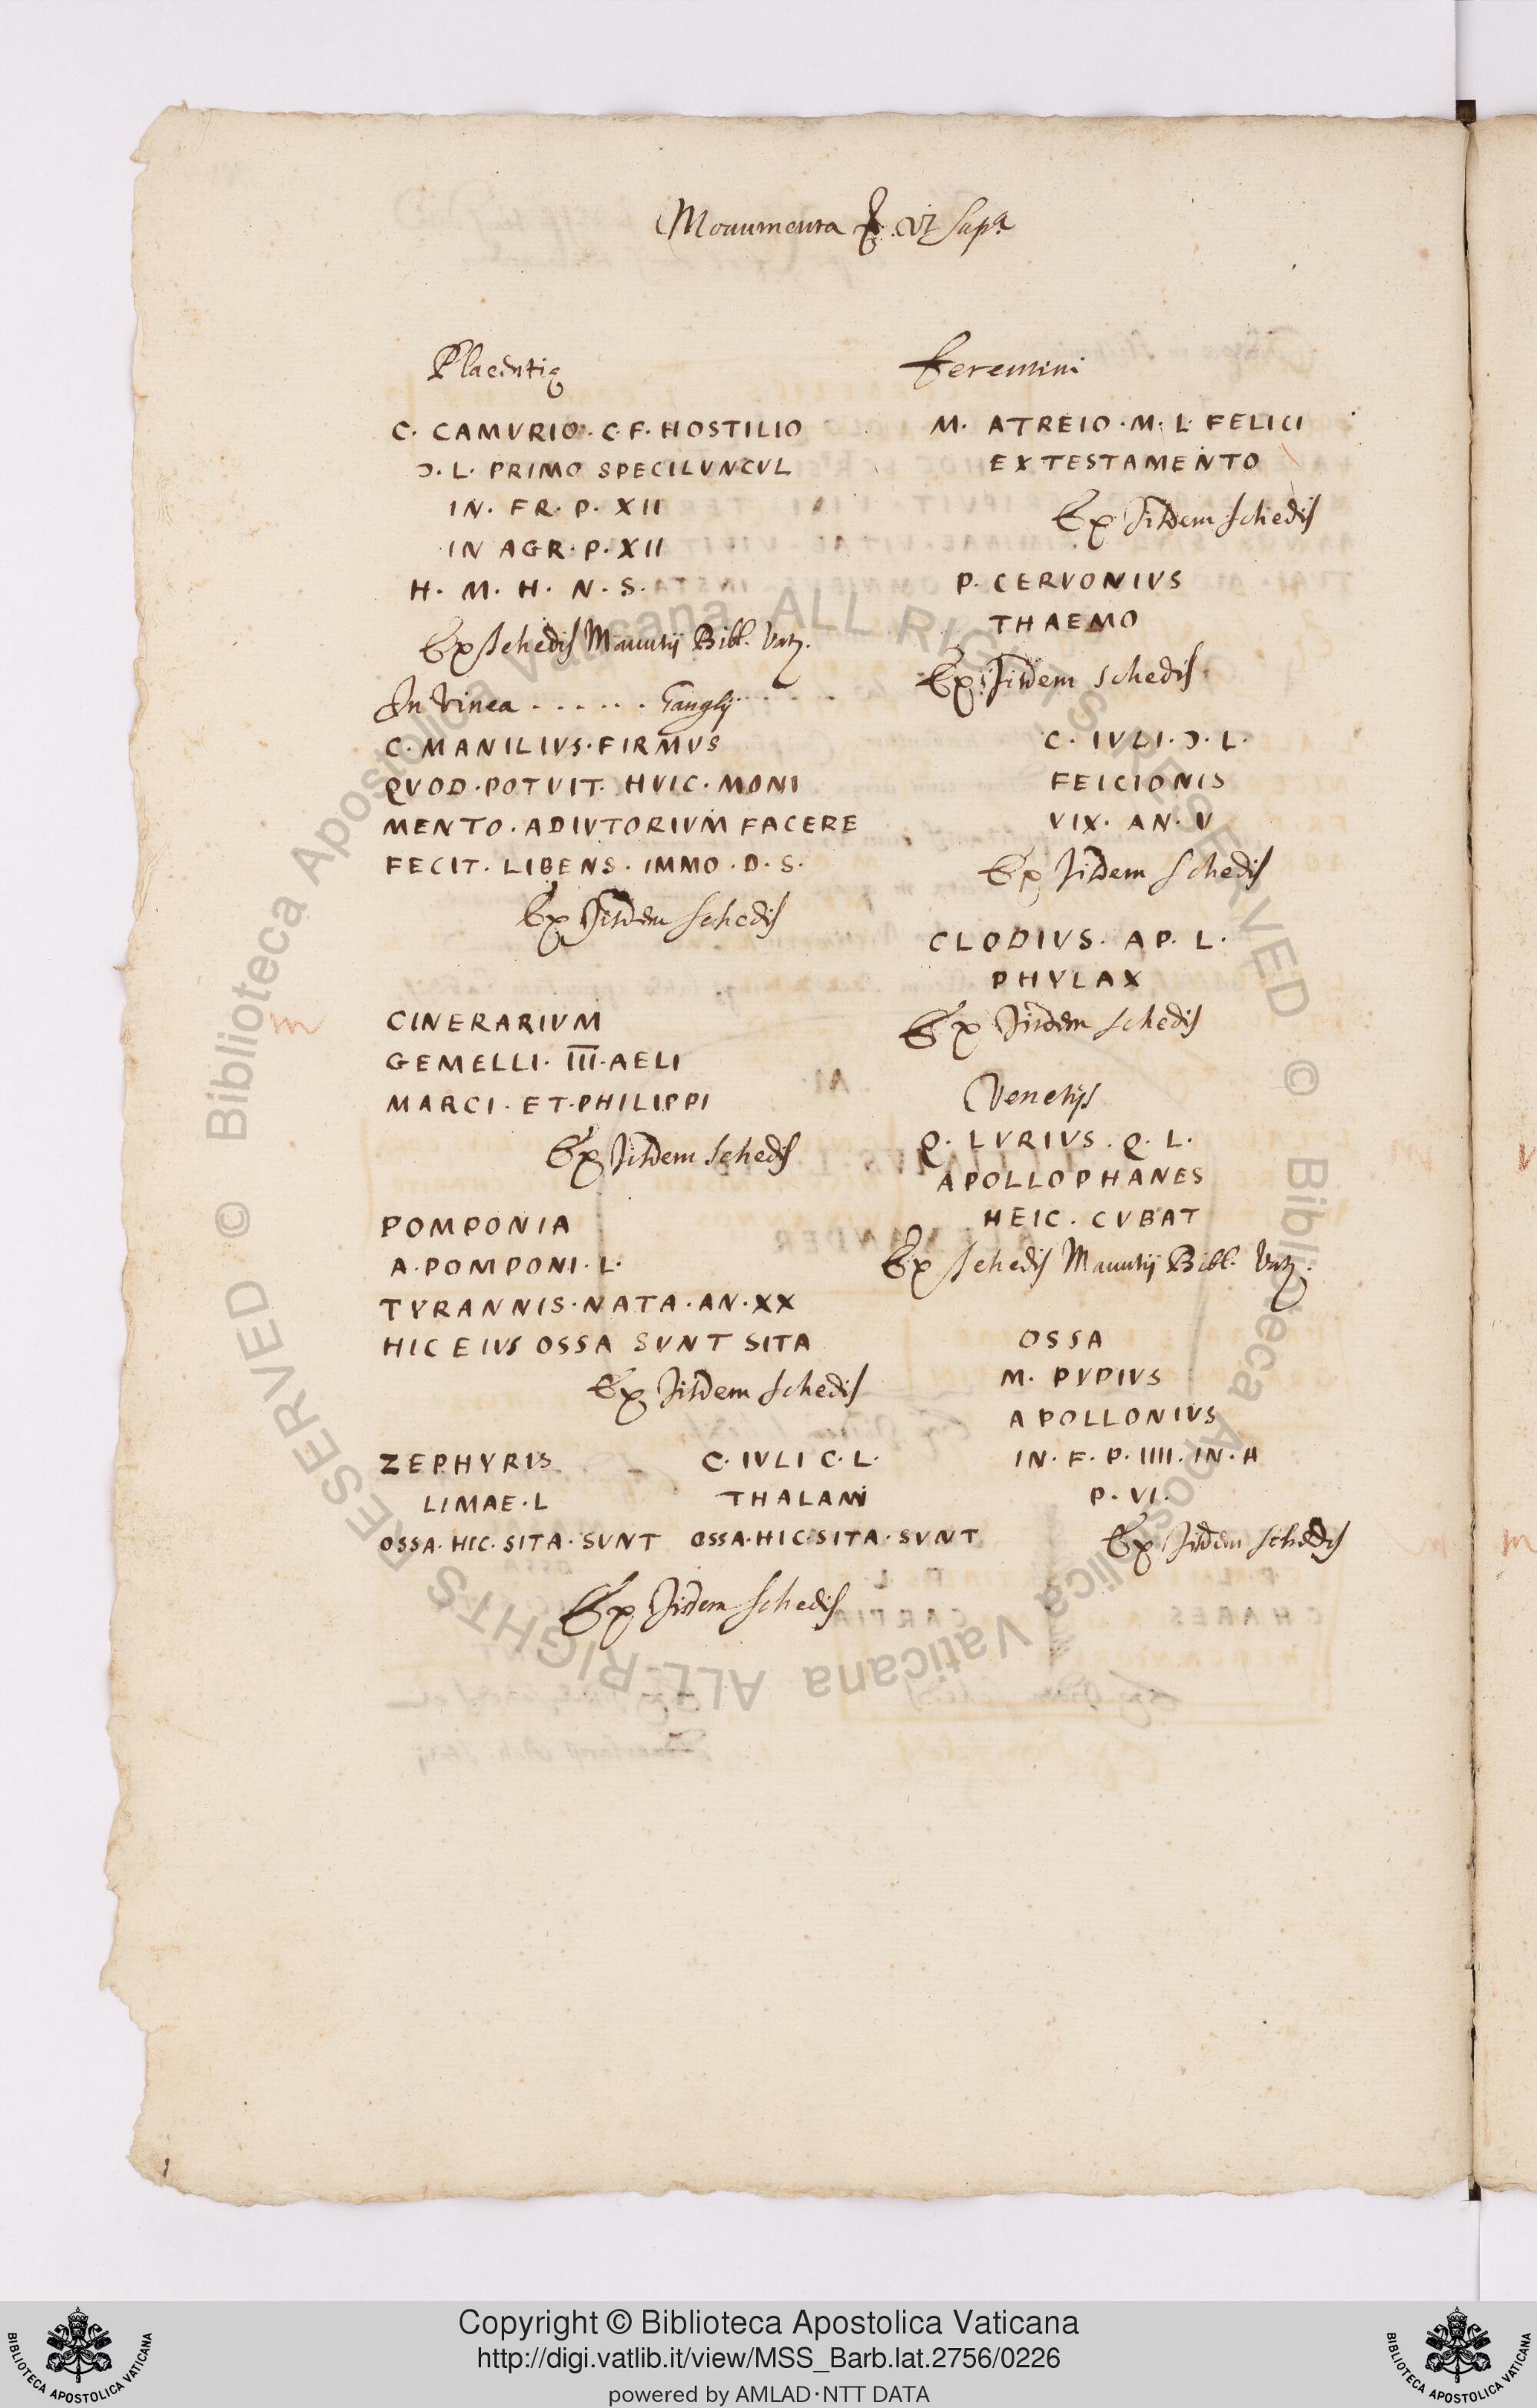 Monumenta &c. Vt supª
Placentię
C. CAMVRIO. C. F. HOSTILIO
Ɔ. L. PRIMO SPECILVNCVL
IN. FR. P. XII
IN AGR. P. XII
H. M. H. N. S.
Ex schedis Manutij Bibl. Vat.
In Vinea . . . . . .
C. MANILIVS. FIRMVS
QVOD. POTVIT. HVIC. MONI
MENTO. ADIVTORIVM FACERE
FECIT. LIBENS. IMMO. D. S.
Ex iisdem schedis
CINERARIVM
GEMELLI. III. AELI
MARCI. ET. PHILIPPI
Ex iisdem schedis
POMPONIA
A. POMPONI. L.
TYRANNIS. NATA. AN. XX
HIC EIVS OSSA SVNT SITA
Ex iisdem schedis
ZEPHYRIS
LIMAE. L
OSSA. HIC. SITA. SVNT
C. IVLI C. L.
THALAMI
OSSA. HIC. SITA. SVNT
Ex iisdem schedis
Ferentini
M. ATREIO. M. L. FELICI
EX TESTAMENTO
Ex iisdem schedis
P. CERVONIVS
THAEMO
Ex iisdem schedis
C. IVLI. Ɔ. L.
FEICIONIS
VIX. AN. V
Ex iisdem schedis
CLODIVS. AP. L.
PHYLAX
Ex iisdem schedis
Venetijs
Q. LVRIVS. Q. L.
APOLLOPHANES
HEIC. CVBAT
Ex schedis Manutij Bibl. Vat.
OSSA
M. PVPIVS
APOLLONIVS
IN. F. P. IIII. IN. A
P. VI.
Ex iisdem schedis
m
© Biblioteca Apostolica Vaticana ALL RIGHTS RESERVED © Biblioteca Apostolica Vaticana ALL RIGHTS RESERVED
Copyright © Biblioteca Apostolica Vaticana
http://digi.vatlib.it/view/MSS_Barb.lat.2756/0226
powered by AMLAD·NTT DATA
BIBLIOTECA APOSTOLICA VATICANA
BIBLIOTECA APOSTOLICA VATICANA